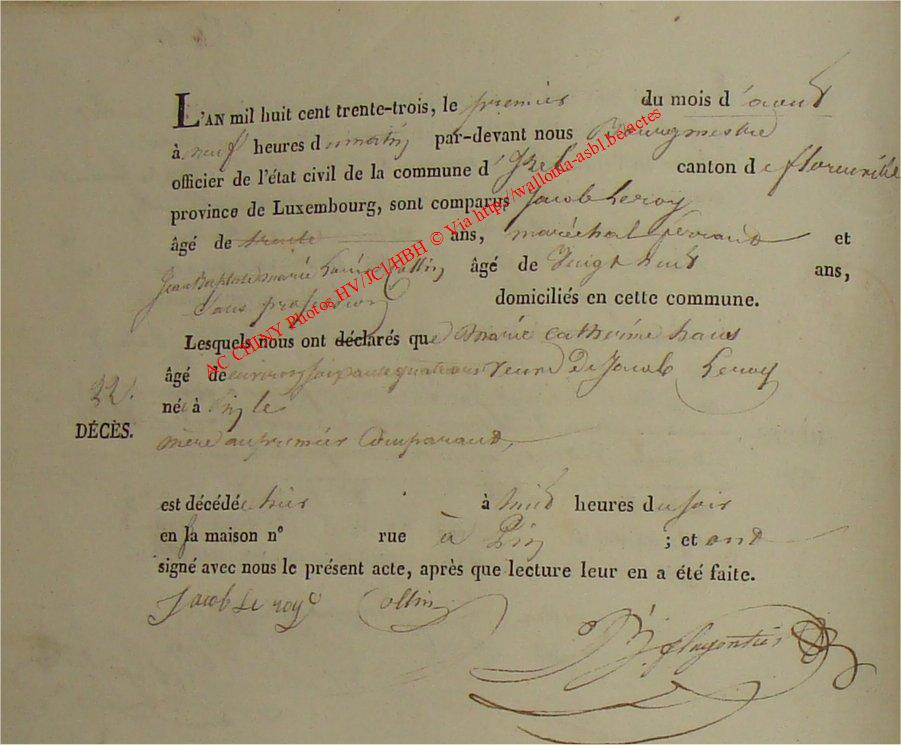 L'AN mil huit cent trente-trois, le premier du mois d'aout
à neuf heures du matin par-devant nous Bourgmestre
officier de l'état civil de la commune d'Izel canton de florenville
province de Luxembourg, sont comparus Jacob Leroy
âgé de trente ans, maréchal ferrand et
Jean Baptiste marie Collin âgé de Vingt huit ans,
Sans profession domiciliés en cette commune.
Lesquels nous ont déclarés que marie catherine
âgé de environ soixante quatre ans veuve de Jacob Leroy
22.
née à Pin le
DÉCÈS.
mère au premier Comparand,
est décédée hier à huit heures du soir
en sa maison n° rue à Pin ; et ont
signé avec nous le présent acte, après que lecture leur en a été faite.
Jacob Le roy Collin
AC CHINY Photos HV/JCl/HBH © Via http://wallonia-asbl.be/actes